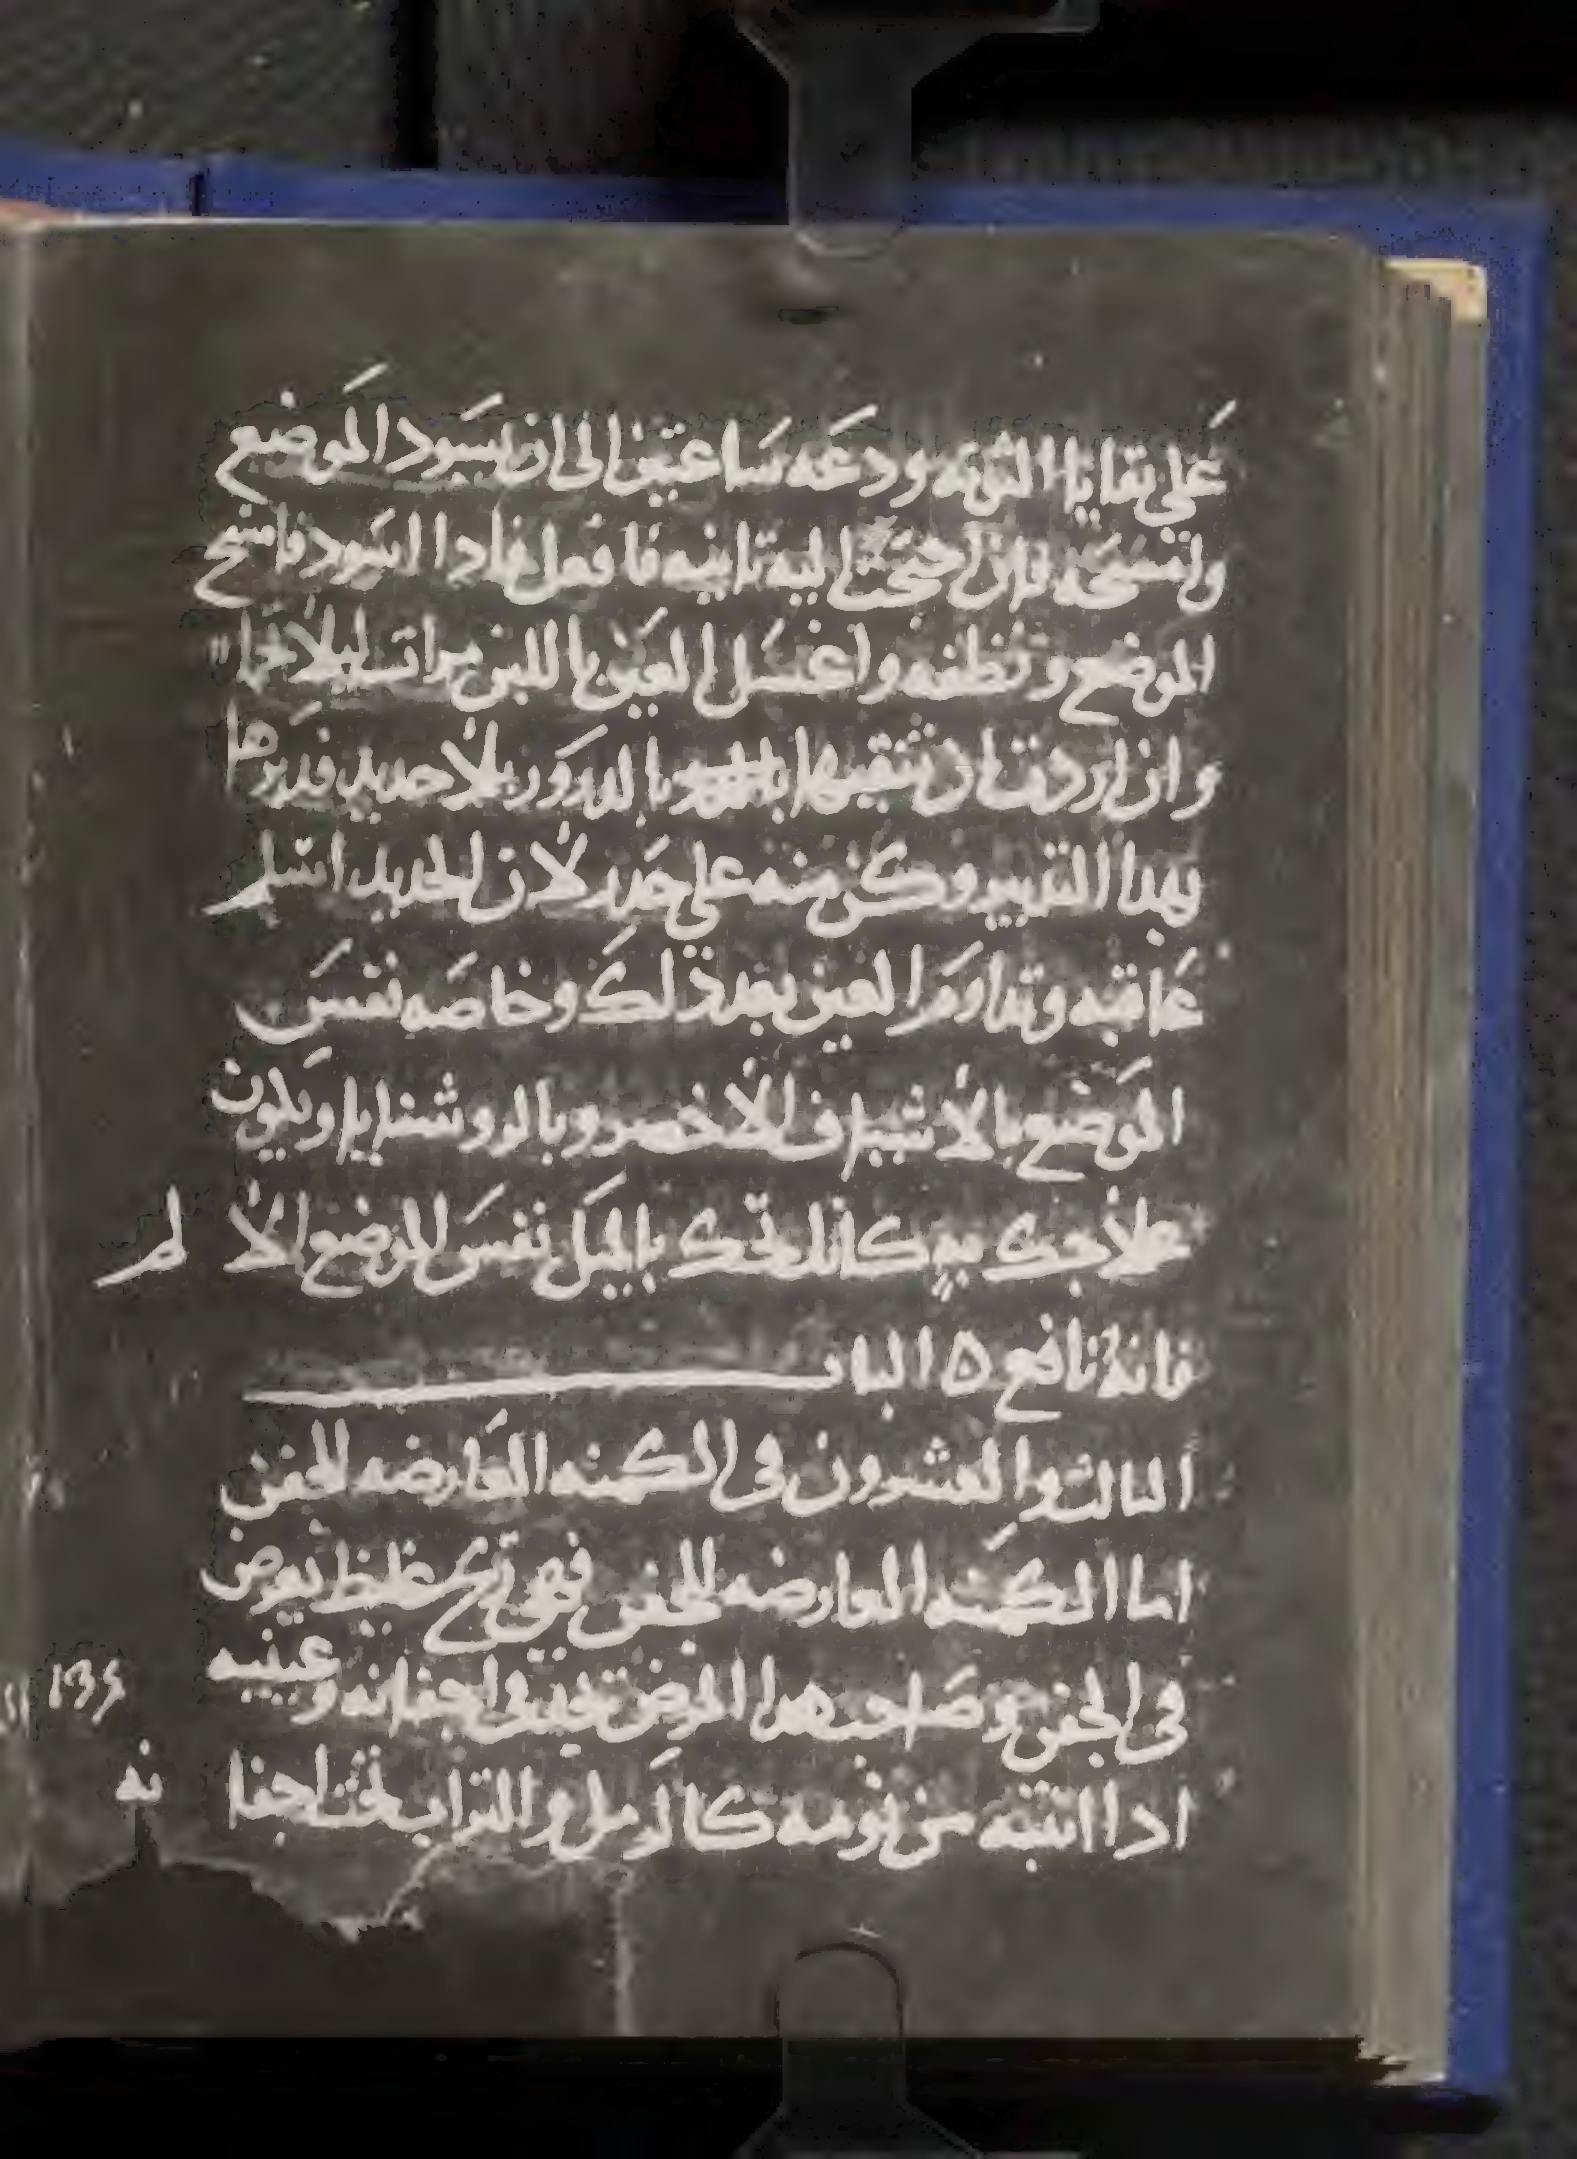 علي بقايا التوته ودعه ساعتين الى ان يسود الموضع
وامسحه فان احتجت اليه تانيه فافعل فادا اسود فامسح
الموضع ونظفه واغسل العين باللبن مرات ليلا
وان اردت ان تنقيها بالدرور بلا حديد فدبرها
بهدا التدبير وكن منه على حدر لان الحديد اسلم
عاقبه وتداوم العين بعد ذلك وخاصه نفس
الموضع بالاشياف الاخضر وبالروشنايا ويكون
علاجك به كانك تحك بالميل نفس الموضع الالم
فانه نافع ه الباب
التالت والعشرون في الكمنه العارضه للجفن
اما الكمنه العارضه للجفن فهي ريح غليظ يعرض
في الجفن وصاحب هدا المرض تجد في اجفانه وعينيه
ادا انتبه من نومه كالرمل والتراب تحت اجفا نه